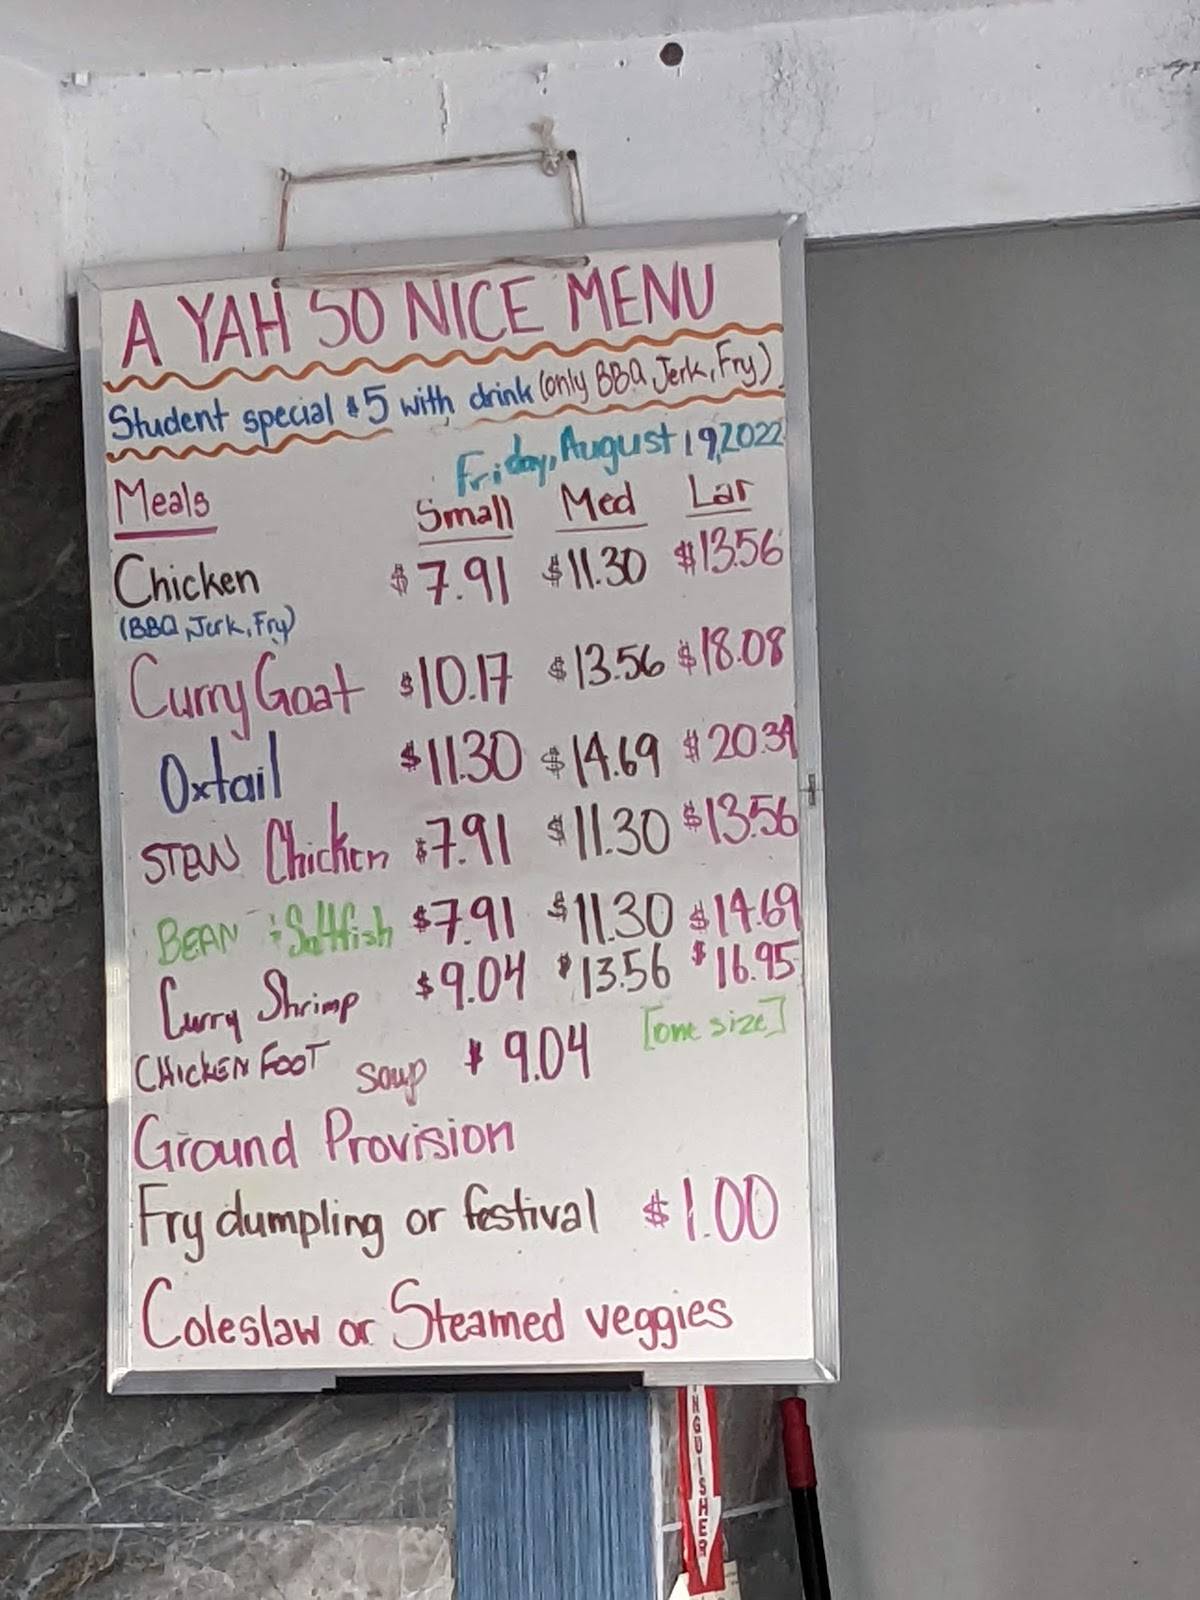 A YAH SO NICE MENU
Student special $5 with drink (only BBQ Jerk, Fry)
Friday, August 19, 2022
Meals Small Med Lar
Chicken $7.91 $11.30 $13.56
(BBQ, Jerk, Fry)
Curry Goat $10.17 $13.56 $18.08
Oxtail $11.30 $14.69 $20.34
STEW Chicken $7.91 $11.30 $13.56
BEAN & Saltfish $7.91 $11.30 $14.69
Curry Shrimp $9.04 $13.56 $16.95
CHICKEN FOOT soup $9.04 [one size]
Ground Provision
Fry dumpling or festival $1.00
Coleslaw or Steamed veggies
NGUISHER